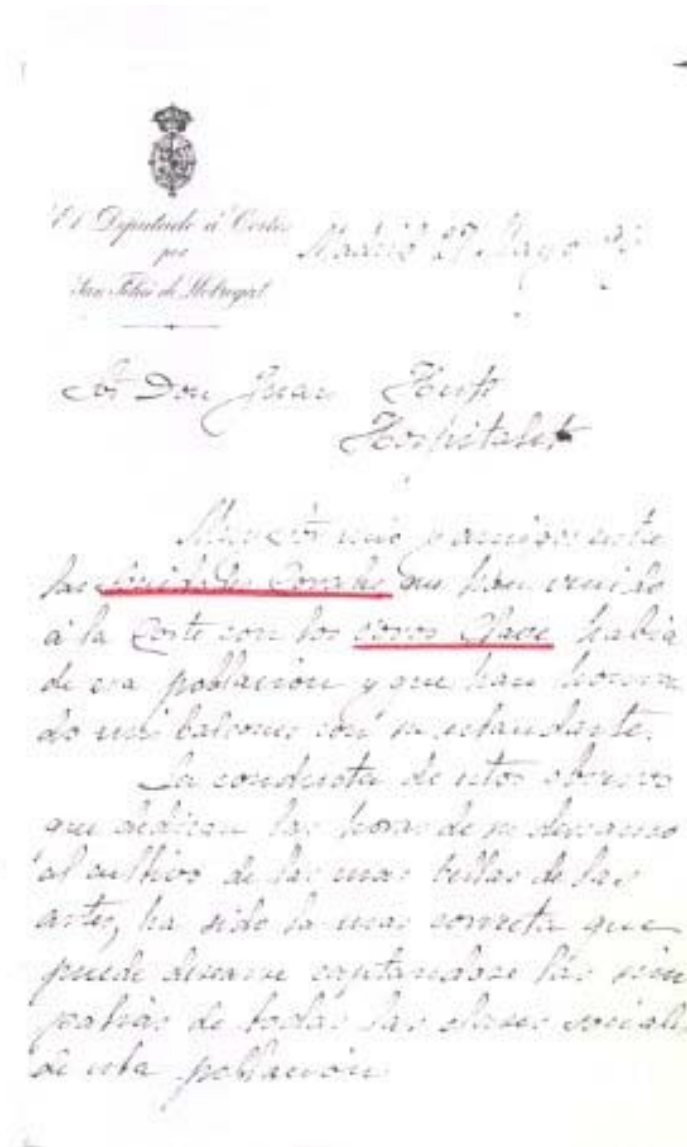 El Diputado á Cortes
por
San Feliu de Llobregat
Madrid 27 Mayo
Sr Don Juan
Hospitalet
Muy Sr mio y amigo: entre
las Sociedades Corales que han venido
á la Corte con los coros Clavé había
de esa población y que han honra
do mis balcones con su estandarte.
La conducta de estos obreros
que dedican las horas de su descanso
al cultivo de las mas bellas de las
artes, ha sido la mas correcta que
puede desearse captandose las sim
patias de todas las clases sociales
de esta población